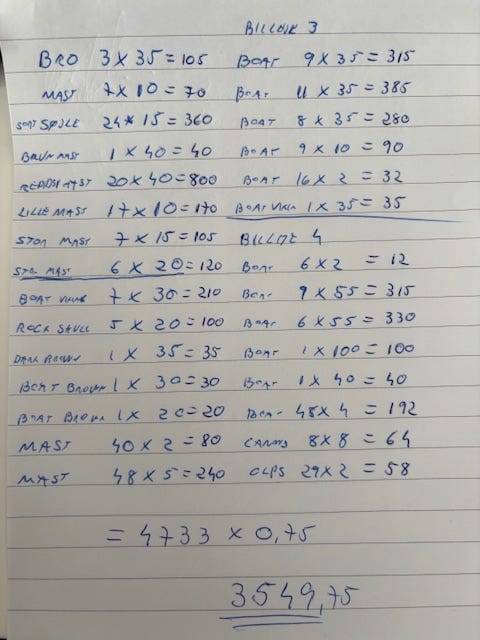 BRO 3 X 35 = 105
MAST 7 X 10 = 70
SORT SØJLE 24 X 15 = 360
BRUN MAST 1 X 40 = 40
MAST 20 X 40 = 800
LILLE MAST 17 X 10 = 170
STOR MAST 7 X 15 = 105
STOR MAST 6 X 20 = 120
BOAT 7 X 30 = 210
ROCK SKULL 5 X 20 = 100
DARK BROWN 1 X 35 = 35
BOAT BROWN 1 X 30 = 30
BOAT BROWN 1 X 20 = 20
MAST 40 X 2 = 80
MAST 48 X 5 = 240
BILLEDE 3
BOAT 9 X 35 = 315
BOAT 11 X 35 = 385
BOAT 8 X 35 = 280
BOAT 9 X 10 = 90
BOAT 16 X 2 = 32
BOAT 1 X 35 = 35
BILLEDE 4
BOAT 6 X 2 = 12
BOAT 9 X 55 = 315
BOAT 6 X 55 = 330
BOAT 1 X 100 = 100
BOAT 1 X 40 = 40
BOAT 48 X 4 = 192
8 X 8 = 64
CLPS 29 X 2 = 58
= 4733 X 0,75
3549,75